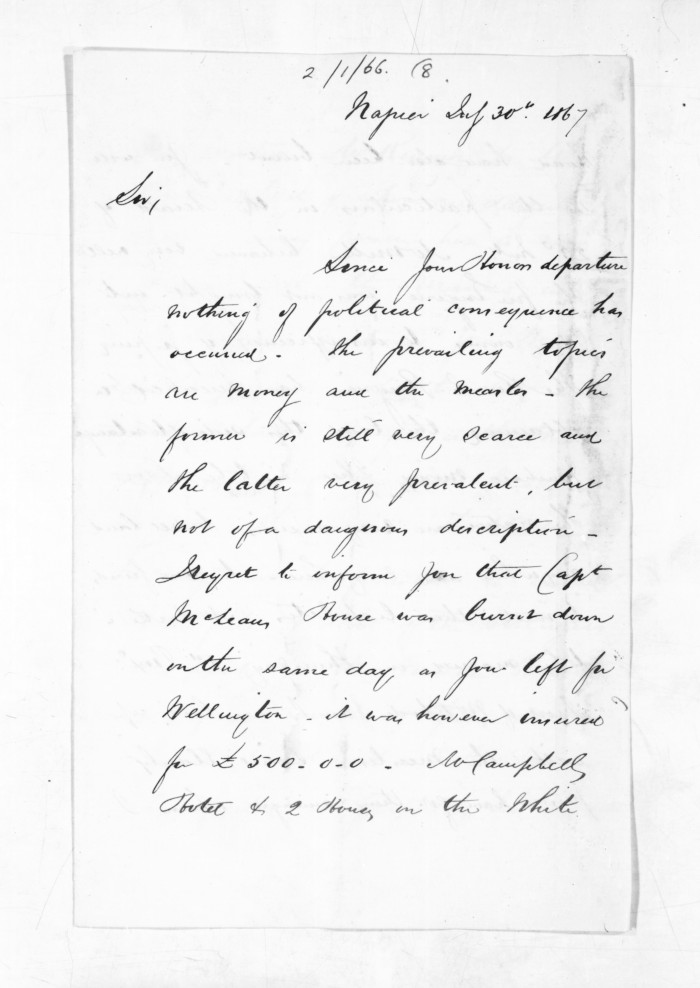 2/1/66. (8.
Napier July 30th. 1867
Sir,
Since Your Honors departure
nothing of political consequence has
occurred - The prevailing topics
are money and the measles - the
former is still very scarce and
the latter very prevalent, but
not of a dangerous description -
I regret to inform you that Capt
McLeans House was burnt down
on the same day as you left for
Wellington - it was however insured
for £500-0-0 - McCampbells
Hotel & 2 Houses on the White